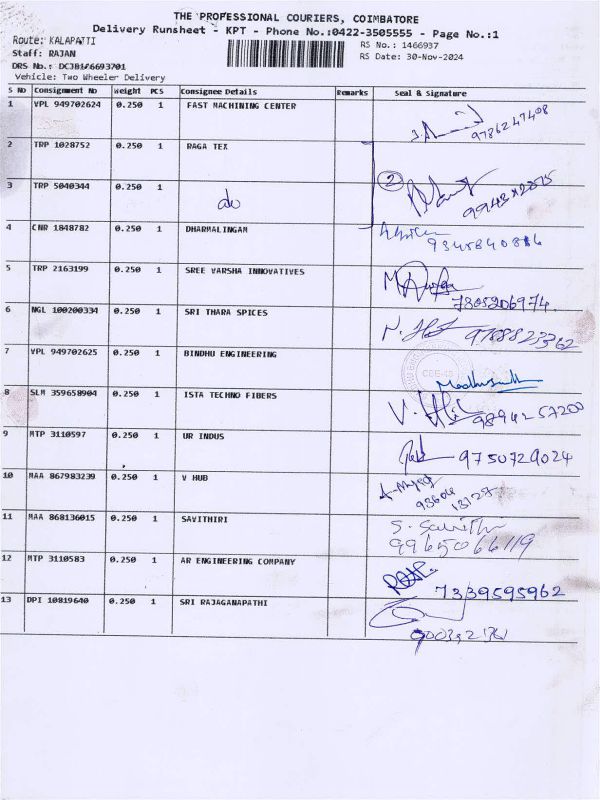 THE PROFESSIONAL COURIERS, COIMBATORE
Delivery Runsheet - KPT - Phone No.:0422-3505555 - Page No.:1
Route: KALAPATTI RS No.: 1466937
Staff: RAJAN RS Date: 30-Nov-2024
DRS No.: DCJB1/6693701
Vehicle: Two Wheeler Delivery
S No Consignment No Weight PCS Consignee Details Remarks Seal & Signature
1 VPL 949702624 0.250 1 FAST MACHINING CENTER
9786247408
2 TRP 1028752 0.250 1 RAGA TEX
3 TRP 5040344 0.250 1 do 2
4 CNR 1848782 0.250 1 DHARMALINGAM
5 TRP 2163199 0.250 1 SREE VARSHA INNOVATIVES
7305206974
6 NGL 100200334 0.250 1 SRI THARA SPICES
9788823362
7 VPL 949702625 0.250 1 BINDHU ENGINEERING
8 SLM 359658904 0.250 1 ISTA TECHNO FIBERS
9894257200
9 MTP 3110597 0.250 1 UR INDUS
9750729024
10 MAA 867983239 0.250 1 V HUB
93606
13128
11 MAA 868136015 0.250 1 SAVITHIRI
9965066119
12 MTP 3110583 0.250 1 AR ENGINEERING COMPANY
7339595962
13 DPI 10819640 0.250 1 SRI RAJAGANAPATHI